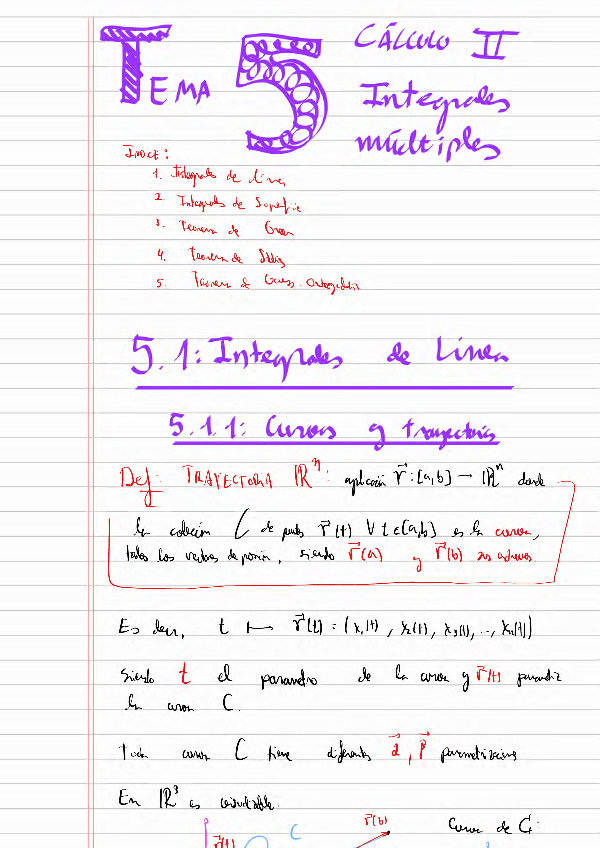 TEMA 5 CÁLCULO II
Integrales
múltiples
ÍNDICE:
1. Integrales de línea
2. Integrales de Superficie
3. Teorema de Green
4. Teorema de Stokes
5. Teorema de Gauss-Ostrogradski
5.1: Integrales de Línea
5.1.1: Curvas y trayectorias
Def: TRAYECTORIA ℝⁿ: aplicación r⃗: [a,b] → ℝⁿ donde
la colección C de puntos r⃗(t) ∀ t ∈ [a,b] es la curva,
todos los vectores de posición, siendo r⃗(a) y r⃗(b) sus extremos
Es decir, t ↦ r⃗(t) = (x₁(t), x₂(t), x₃(t), ..., xₙ(t))
Siendo t el parametro de la curva y r⃗(t) parametriza
la curva C.
Toda curva C tiene diferentes parametrizaciones
En ℝ³ es
r⃗(t) C r⃗(b) Curva de C: